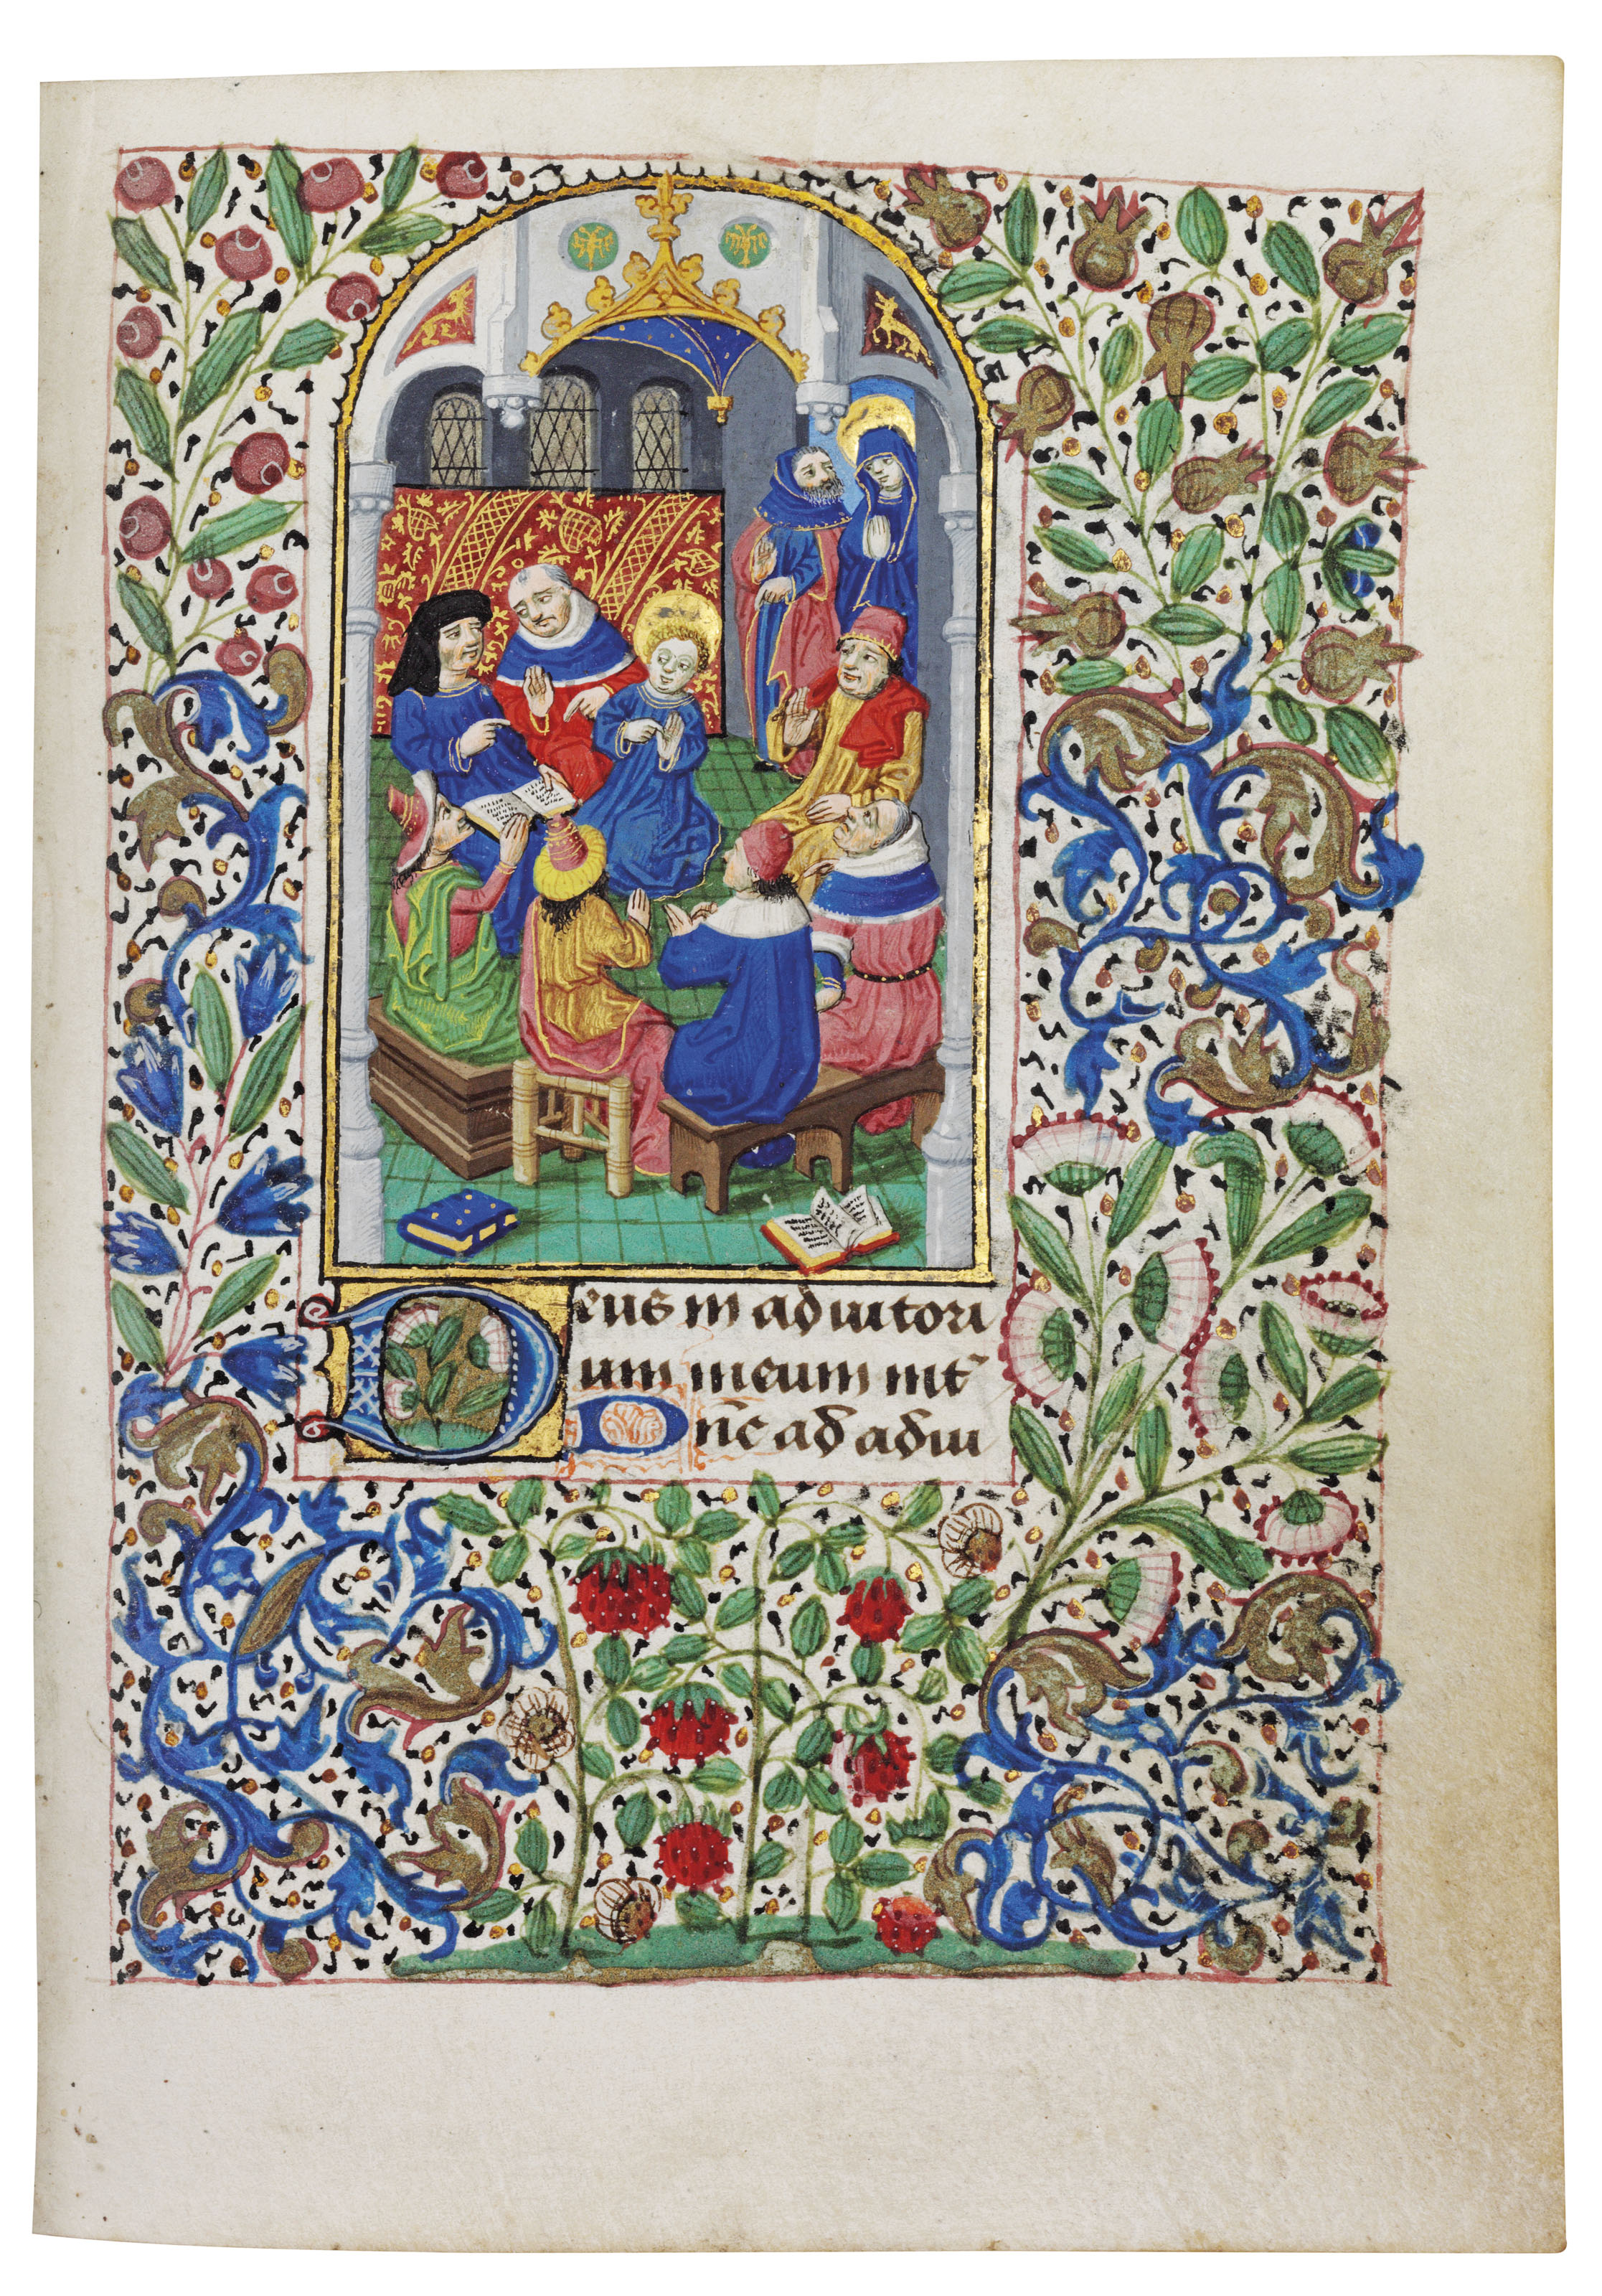 Deus in adiutori
um meum int
Dn̄e ad adiu